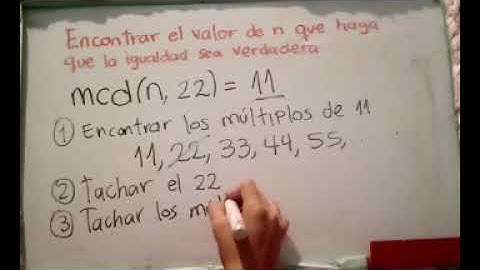 Encontrar el valor de n que haga
que la igualdad sea verdadera
mcd(n, 22) = 11
① Encontrar los múltiplos de 11
11, 22, 33, 44, 55, ...
② Tachar el 22
③ Tachar los